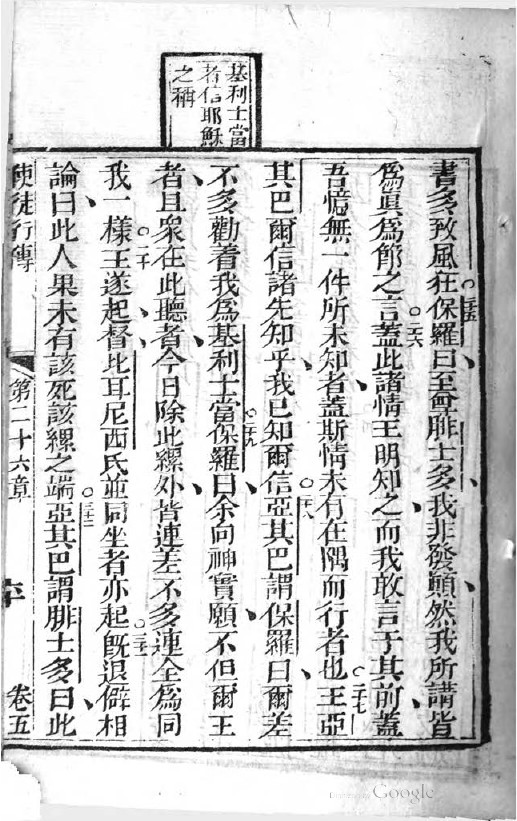 基利士當
者信耶穌
之稱
書多致風狂○二五保羅曰至尊腓士多我非發顛然我所講皆
爲眞爲節之言○二六蓋此諸情王明知之而我敢言于其前蓋
吾憶無一件所未知者蓋斯情未有在隅而行者也○二七王亞
其巴爾信諸先知乎我已知爾信○二八亞其巴謂保羅曰爾差
不多勸着我爲基利士當○二九保羅曰余向神實願不但爾王
者且衆○三十在此聽者今日除此縲外皆連差不多連全爲同
我一樣王遂起督比耳尼西氏並同坐者亦起○三一旣退僻相
論曰此人果未有該死該縲之端○三二亞其巴謂腓士多曰此
使徒行傳
第二十六章
卷五
Google